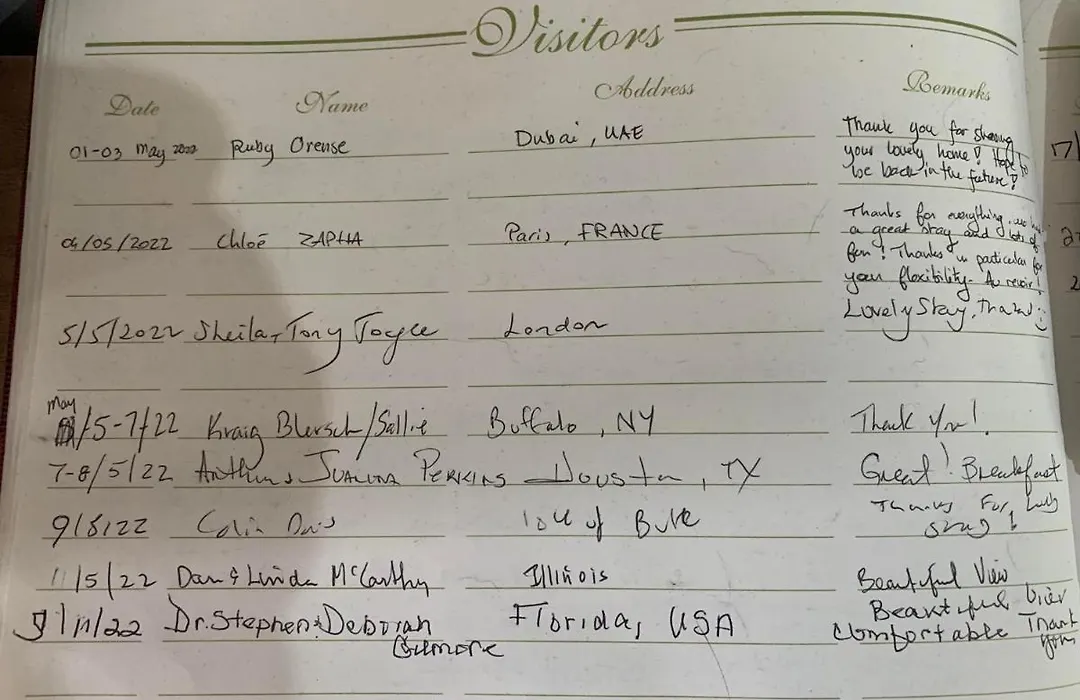 Visitors
Date Name Address Remarks
01-03 May 2022 Ruby Orense Dubai, UAE Thank you for sharing
your lovely home! Hope to
be back in the future!
04/05/2022 Chloé ZAPHA Paris, FRANCE Thanks for everything, we had
a great stay and lots of
fun! Thanks in particular for
your flexibility. Au revoir!
5/5/2022 Sheila + Tony Joyce London Lovely Stay, Thanks
May /5-7/22 Kraig Blersch/Sallie Buffalo, NY Thank You!
7-8/5/22 Juanina Perkins Houston, TX Great! Breakfast
9/5/22 Colin Davis of Bute Thanks For
Stay!
11/5/22 Dan & Linda McCarthy Illinois Beautiful View
5/11/22 Dr. Stephen & Deborah Florida, USA Beautiful View
Gilmore Comfortable Thank
you